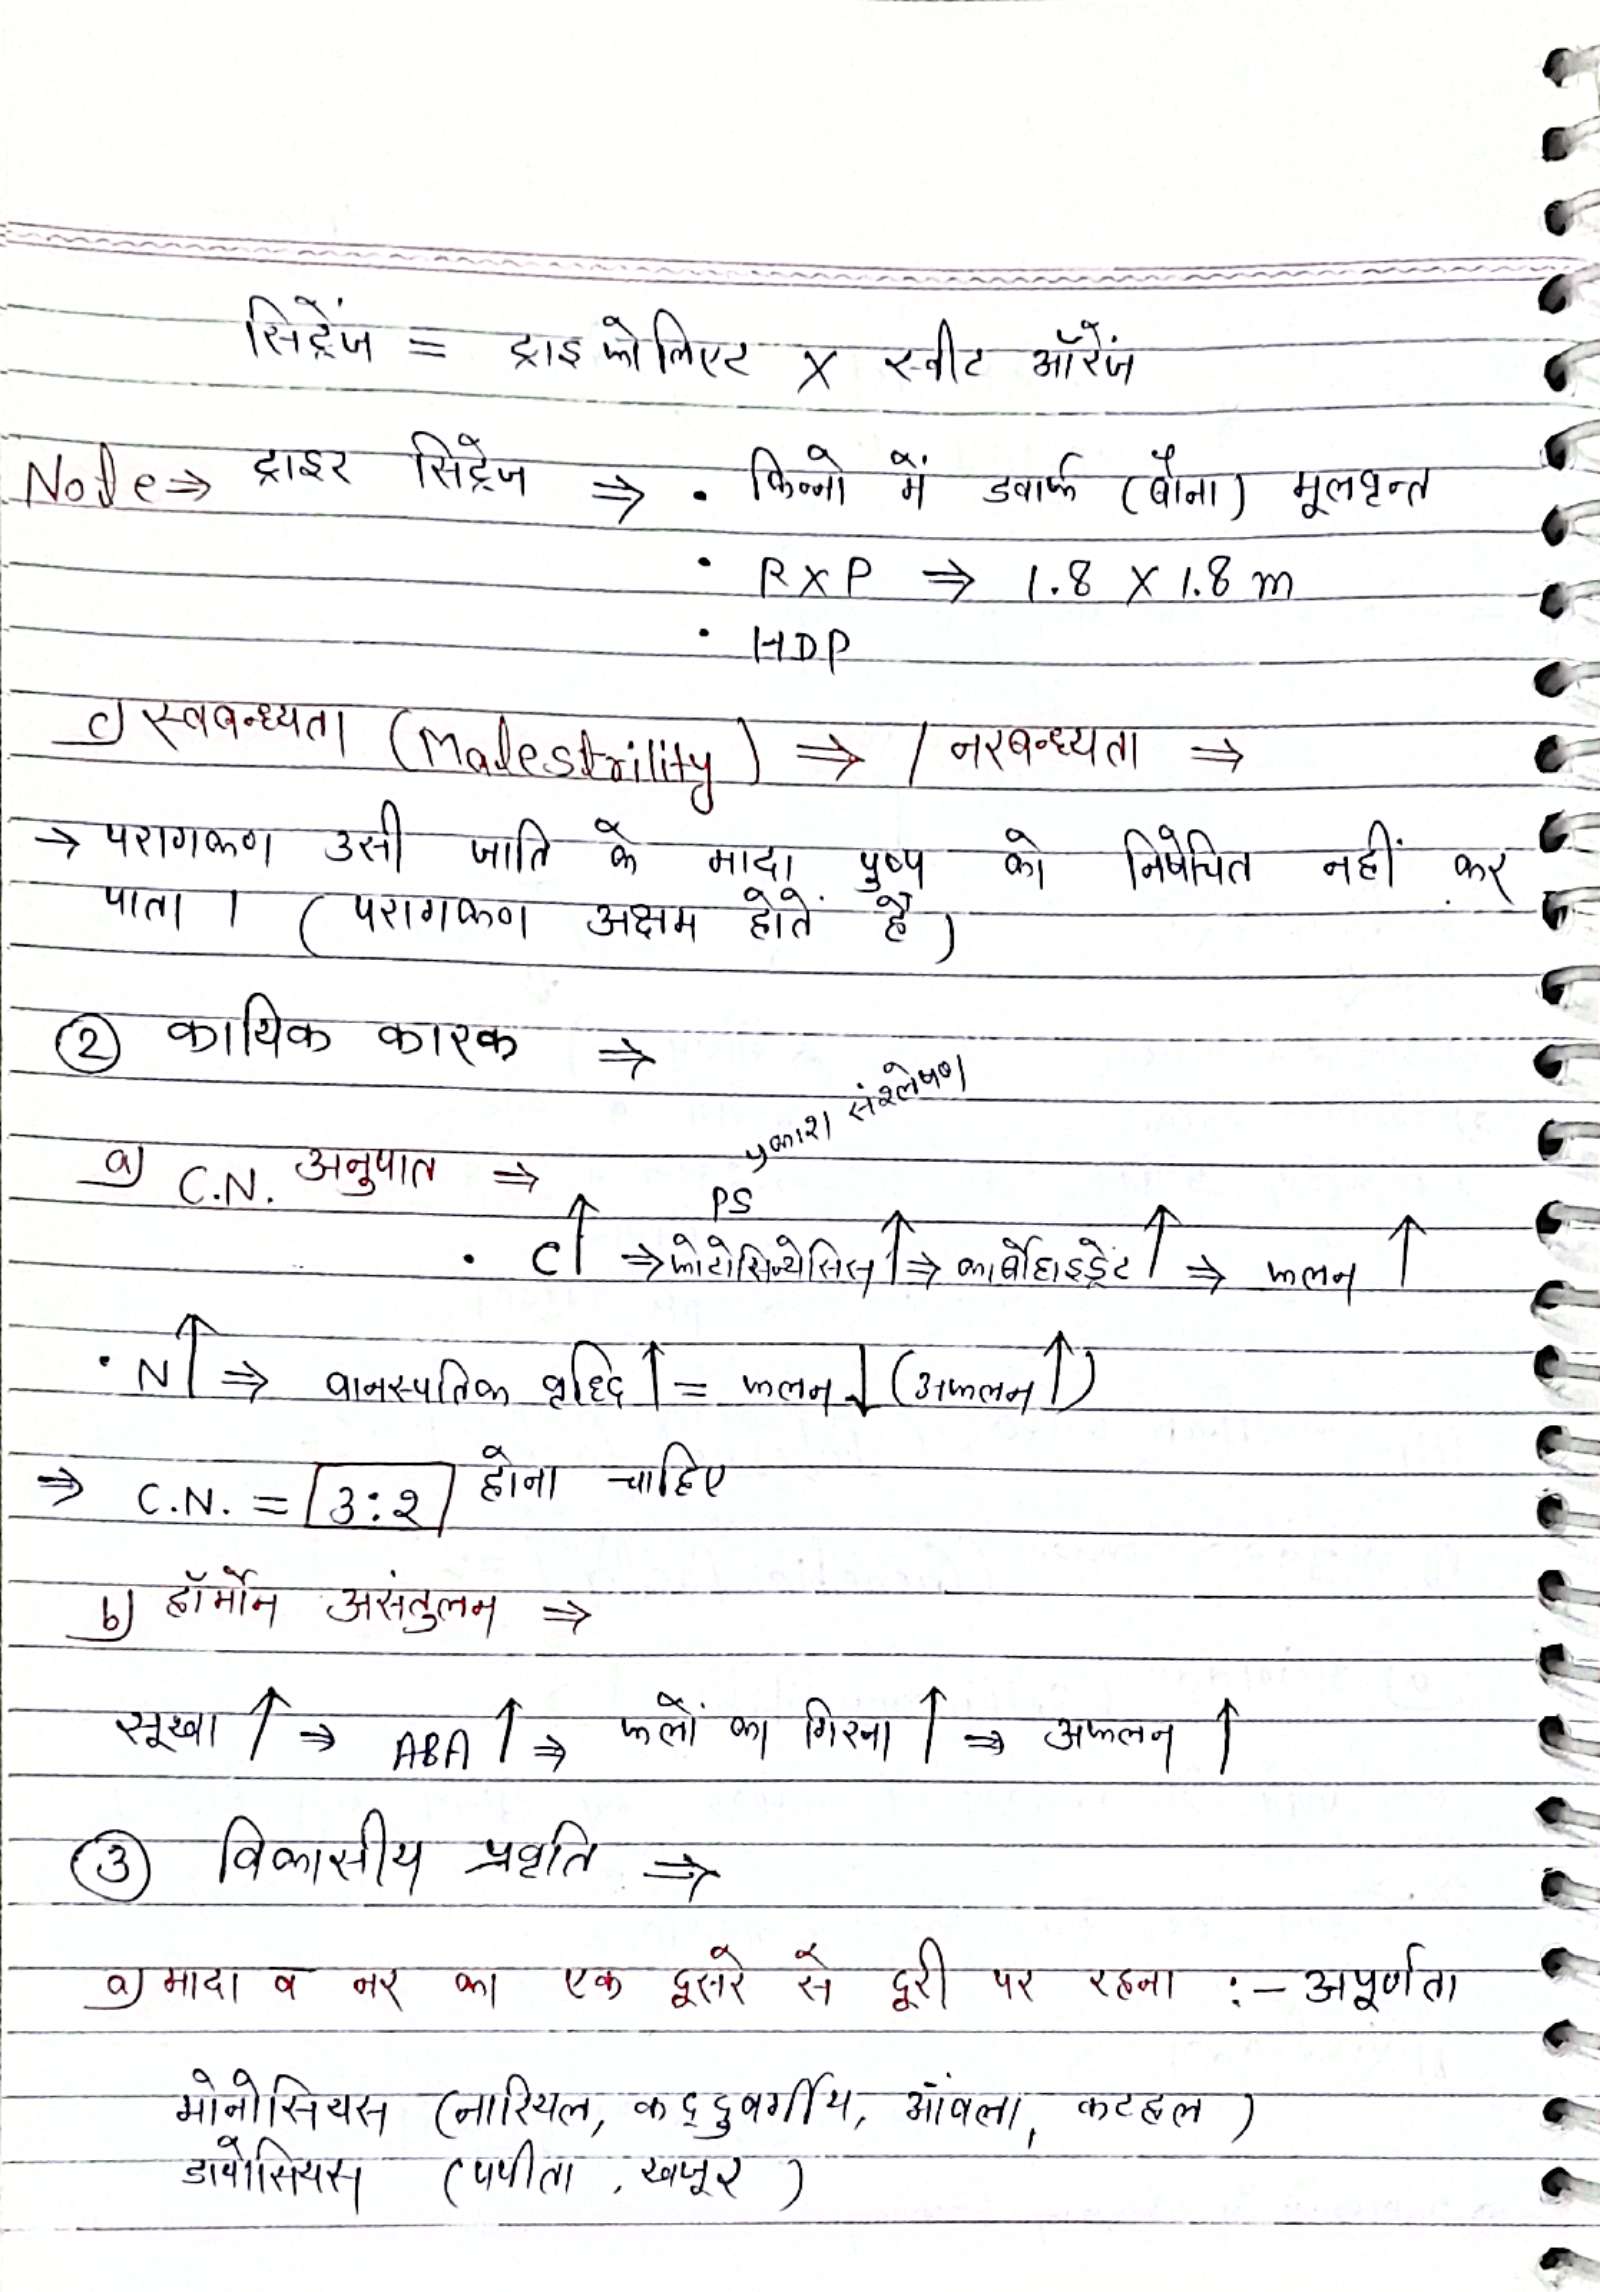 सिट्रेंज = ट्राइफोलिएट X स्वीट ऑरेंज
Note ⇒ ट्राइर सिट्रेंज ⇒ • किन्नो में डवार्फ (बौना) मूलवृन्त
• RXP ⇒ 1.8 X 1.8 m
• HDP
c) स्वबन्ध्यता (Malestrility) ⇒ / नरबन्ध्यता ⇒
→ परागकण उसी जाति के मादा पुष्प को निषेचित नहीं कर
पाता । (परागकण अक्षम होतें है)
② कायिक कारक ⇒
प्रकाश संश्लेषण
a) C.N. अनुपात ⇒
PS
• C↑ ⇒ फोटोसिन्थेसिस↑ ⇒ कार्बोहाइड्रेट↑ ⇒ फलन↑
• N↑ ⇒ वानस्पतिक वृध्दि↑ = फलन↓ (अफलन↑)
⇒ C.N. = 3:2 होना चाहिए
b) हॉर्मोन असंतुलन ⇒
सूखा↑ ⇒ ABA↑ ⇒ फलों का गिरना↑ ⇒ अफलन↑
③ विकासीय प्रवृति ⇒
a) मादा व नर का एक दूसरे से दूरी पर रहना :- अपूर्णता
मोनोसियस (नारियल, कद्दुवर्गीय, आंवला, कटहल)
डायोसियस (पपीता, खजूर)